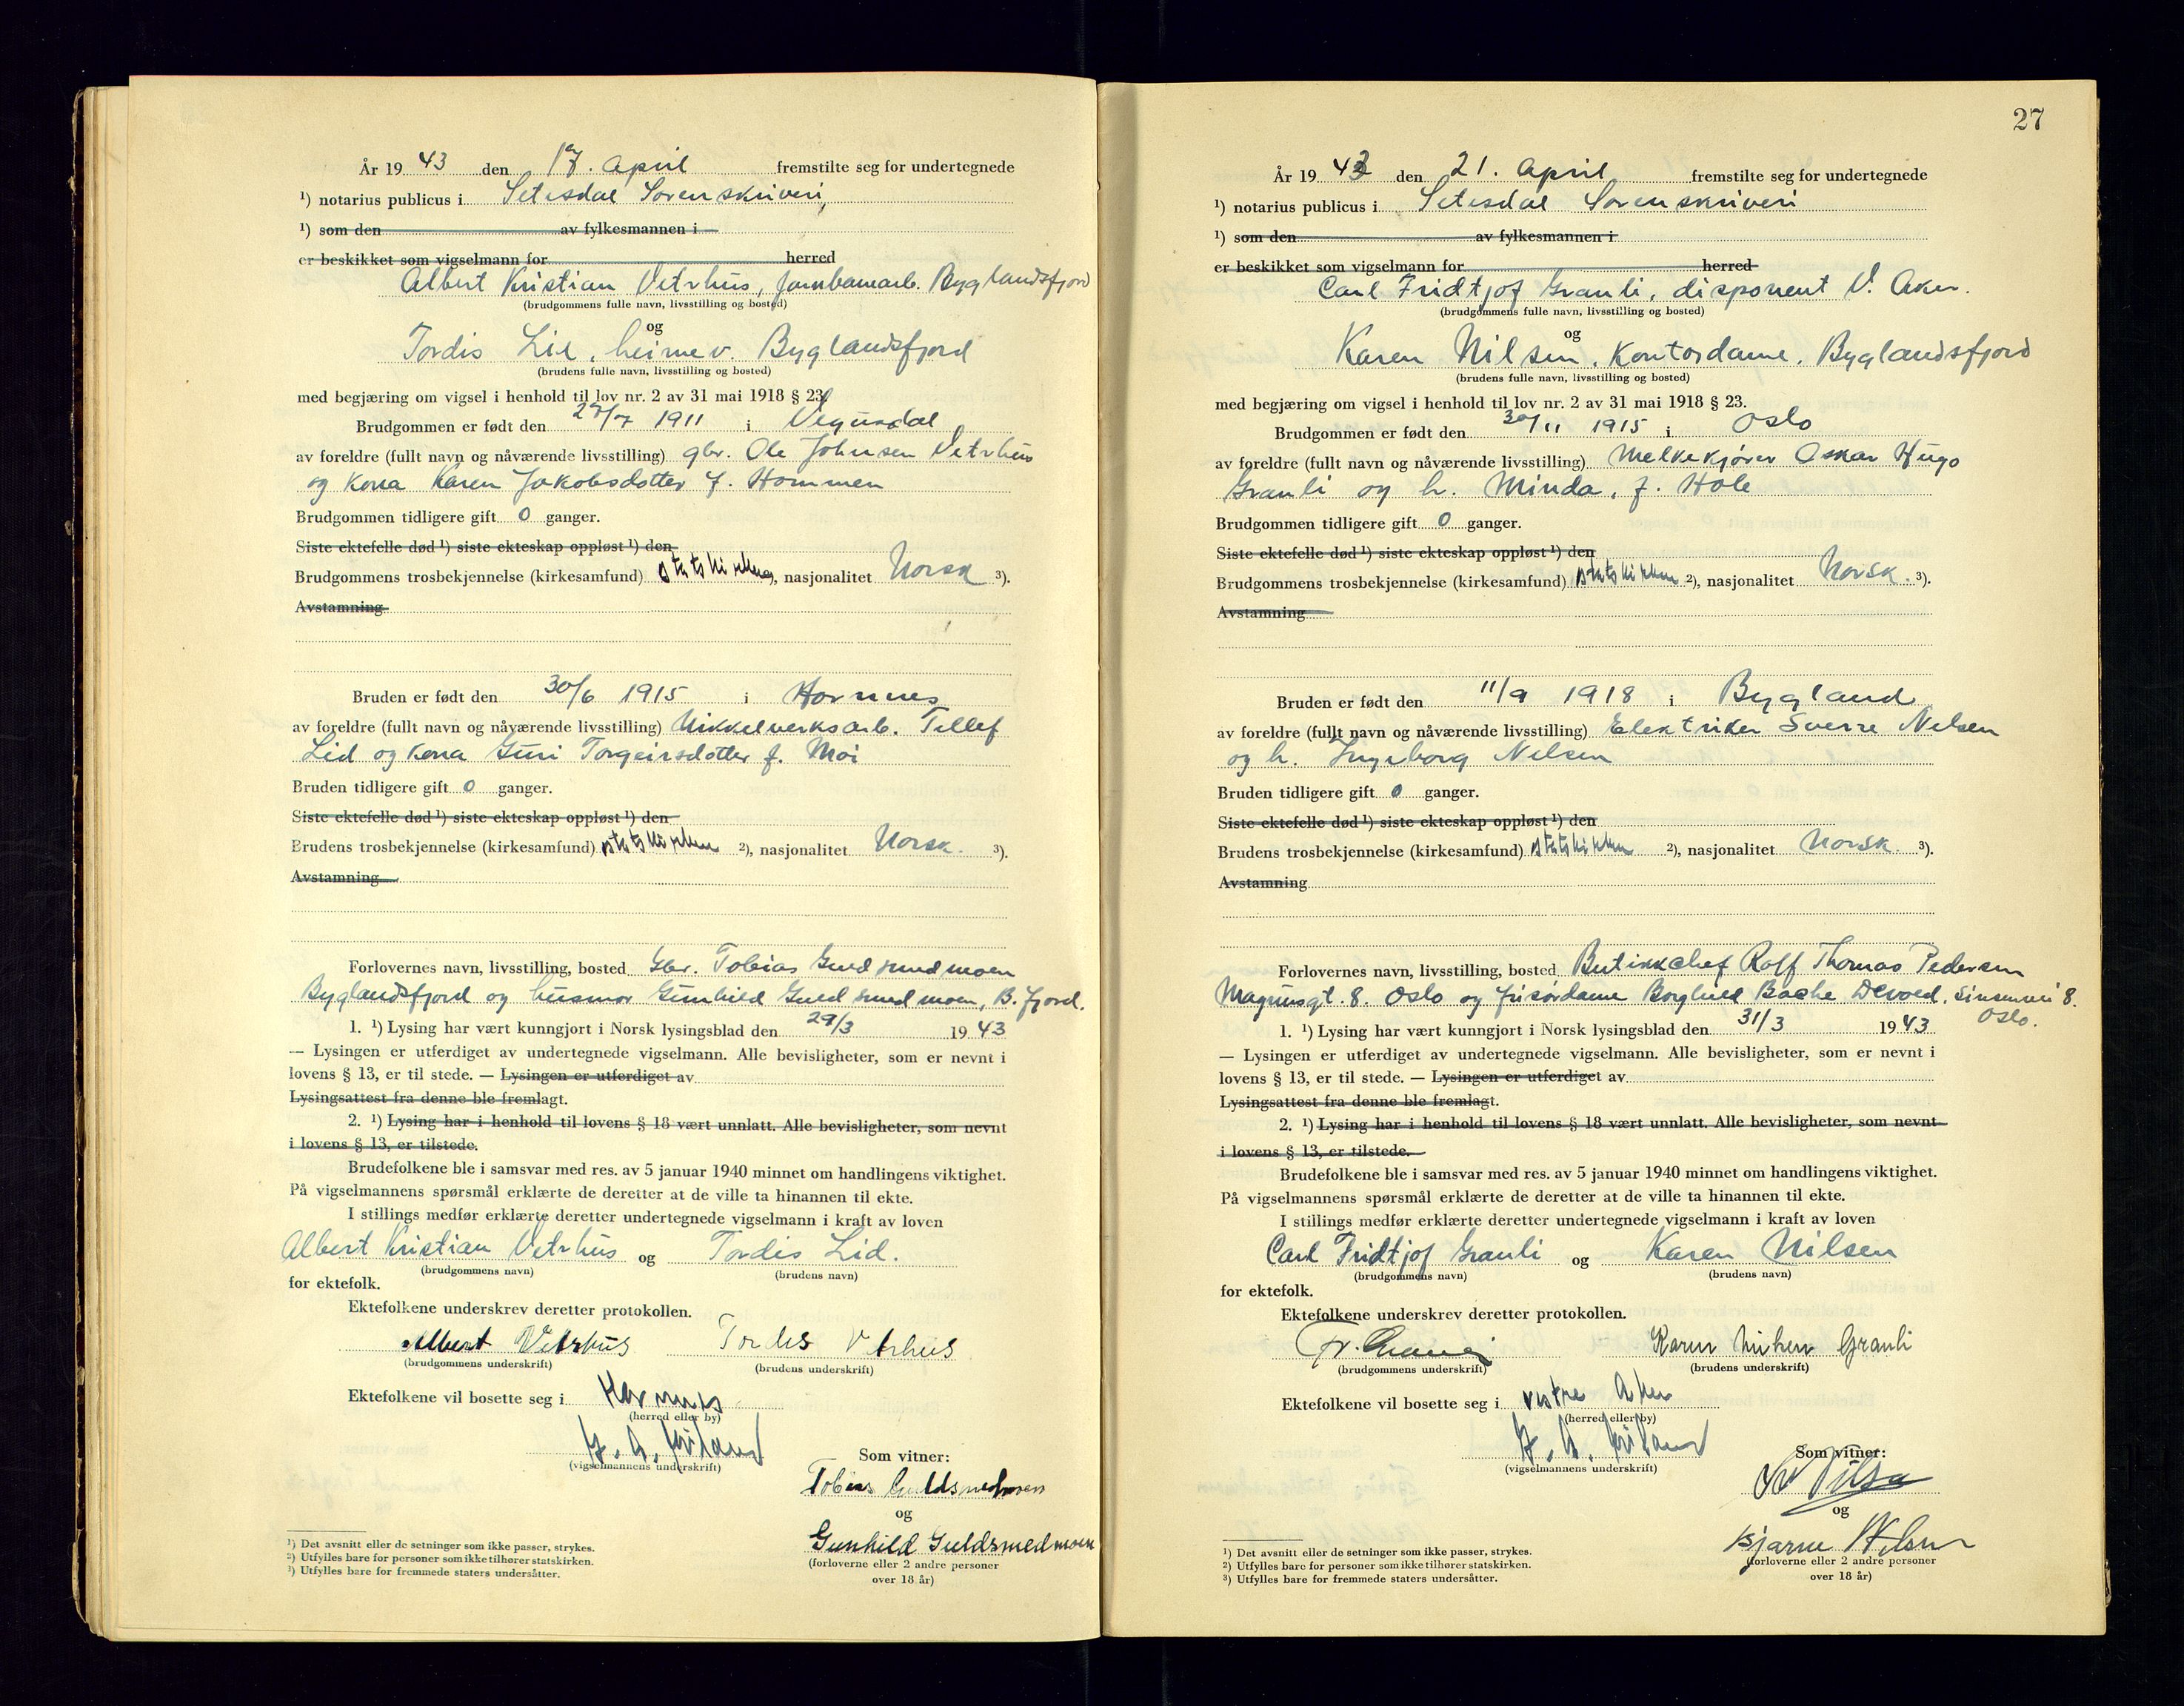 År 19 43 den 17. April fremstilte seg for undertegnede
¹) notarius publicus i Setesdal Sorenskriveri,
¹) som den av fylkesmannen i
er beskikket som vigselmann for herred
Albert Kristian Vetrhus, Jernbanearb. Byglandsfjord
(brudgommens fulle navn, livsstilling og bosted)
og
Tordis Lid, heimev. Byglandsfjord
(brudens fulle navn, livsstilling og bosted)
med begjæring om vigsel i henhold til lov nr. 2 av 31 mai 1918 § 23.
Brudgommen er født den 27/7 1911 i Vegusdal
av foreldre (fullt navn og nåværende livsstilling) gbr. Ole Johnsen Vetrhus
og kona Karen Jakobsdotter f. Hommen
Brudgommen tidligere gift 0 ganger.
Siste ektefelle død ¹) siste ekteskap oppløst ¹) den
Brudgommens trosbekjennelse (kirkesamfund) statskirken, nasjonalitet Norsk ³).
Avstamning
Bruden er født den 30/6 1915 i Hornnes
av foreldre (fullt navn og nåværende livsstilling) Nikkelverksarb. Tellef
Lid og kona Guri Torgeirsdotter f. Moi
Bruden tidligere gift 0 ganger.
Siste ektefelle død ¹) siste ekteskap oppløst ¹) den
Brudens trosbekjennelse (kirkesamfund) statskirken ²), nasjonalitet Norsk. ³).
Avstamning
Forlovernes navn, livsstilling, bosted Gbr. Tobias Guldsmedmoen
Byglandsfjord og husmor Gunhild Guldsmedmoen, B.fjord.
1. ¹) Lysing har vært kunngjort i Norsk lysingsblad den 29/3 19 43
— Lysingen er utferdiget av undertegnede vigselmann. Alle bevisligheter, som er nevnt i
lovens § 13, er til stede. — Lysingen er utferdiget av
Lysingsattest fra denne ble fremlagt.
2. ¹) Lysing har i henhold til lovens § 18 vært unnlatt. Alle bevisligheter, som nevnt
i lovens § 13, er tilstede.
Brudefolkene ble i samsvar med res. av 5 januar 1940 minnet om handlingens viktighet.
På vigselmannens spørsmål erklærte de deretter at de ville ta hinannen til ekte.
I stillings medfør erklærte deretter undertegnede vigselmann i kraft av loven
Albert Kristian Vetrhus og Tordis Lid.
(brudgommens navn) (brudens navn)
for ektefolk.
Ektefolkene underskrev deretter protokollen.
Albert Vetrhus Tordis Vetrhus
(brudgommens underskrift) (brudens underskrift)
Ektefolkene vil bosette seg i Hornnes
(herred eller by)
(vigselmannens underskrift)
Som vitner:
Tobias Guldsmedmoen
og
Gunhild Guldsmedmoen
(forloverne eller 2 andre personer
over 18 år)
¹) Det avsnitt eller de setninger som ikke passer, strykes.
²) Utfylles bare for personer som ikke tilhører statskirken.
³) Utfylles bare for fremmede staters undersåtter.
27
År 19 43 den 21. April fremstilte seg for undertegnede
¹) notarius publicus i Setesdal Sorenskriveri
¹) som den av fylkesmannen i
er beskikket som vigselmann for herred
Carl Fridtjof Granli, disponent V. Aker.
(brudgommens fulle navn, livsstilling og bosted)
og
Karen Nilsen, Kontordame, Byglandsfjord
(brudens fulle navn, livsstilling og bosted)
med begjæring om vigsel i henhold til lov nr. 2 av 31 mai 1918 § 23.
Brudgommen er født den 30/11 1915 i Oslo
av foreldre (fullt navn og nåværende livsstilling) Melkekjører Oskar Hugo
Granli og h. Minda, f. Hole
Brudgommen tidligere gift 0 ganger.
Siste ektefelle død ¹) siste ekteskap oppløst ¹) den
Brudgommens trosbekjennelse (kirkesamfund) statskirken ²), nasjonalitet Norsk. ³).
Avstamning
Bruden er født den 11/9 1918 i Bygland
av foreldre (fullt navn og nåværende livsstilling) Elektriker Sverre Nelsen
og h. Ingeborg Nelsen
Bruden tidligere gift 0 ganger.
Siste ektefelle død ¹) siste ekteskap oppløst ¹) den
Brudens trosbekjennelse (kirkesamfund) statskirken ²), nasjonalitet Norsk. ³).
Avstamning
Forlovernes navn, livsstilling, bosted Butikkchef Rolf Thomas Pedersen
Magnusgt. 8. Oslo og frisørdame Borghild Bache Devold, Sinsenvei 8.
Oslo.
1. ¹) Lysing har vært kunngjort i Norsk lysingsblad den 31/3 19 43
— Lysingen er utferdiget av undertegnede vigselmann. Alle bevisligheter, som er nevnt i
lovens § 13, er til stede. — Lysingen er utferdiget av
Lysingsattest fra denne ble fremlagt.
2. ¹) Lysing har i henhold til lovens § 18 vært unnlatt. Alle bevisligheter, som nevnt
i lovens § 13, er tilstede.
Brudefolkene ble i samsvar med res. av 5 januar 1940 minnet om handlingens viktighet.
På vigselmannens spørsmål erklærte de deretter at de ville ta hinannen til ekte.
I stillings medfør erklærte deretter undertegnede vigselmann i kraft av loven
Carl Fridtjof Granli og Karen Nilsen
(brudgommens navn) (brudens navn)
for ektefolk.
Ektefolkene underskrev deretter protokollen.
Fr. Granli Karen Nilsen Granli
(brudgommens underskrift) (brudens underskrift)
Ektefolkene vil bosette seg i vestre Aker
(herred eller by)
(vigselmannens underskrift)
Som vitner:
og
Bjarne Nilsen
(forloverne eller 2 andre personer
over 18 år)
¹) Det avsnitt eller de setninger som ikke passer, strykes.
²) Utfylles bare for personer som ikke tilhører statskirken.
³) Utfylles bare for fremmede staters undersåtter.